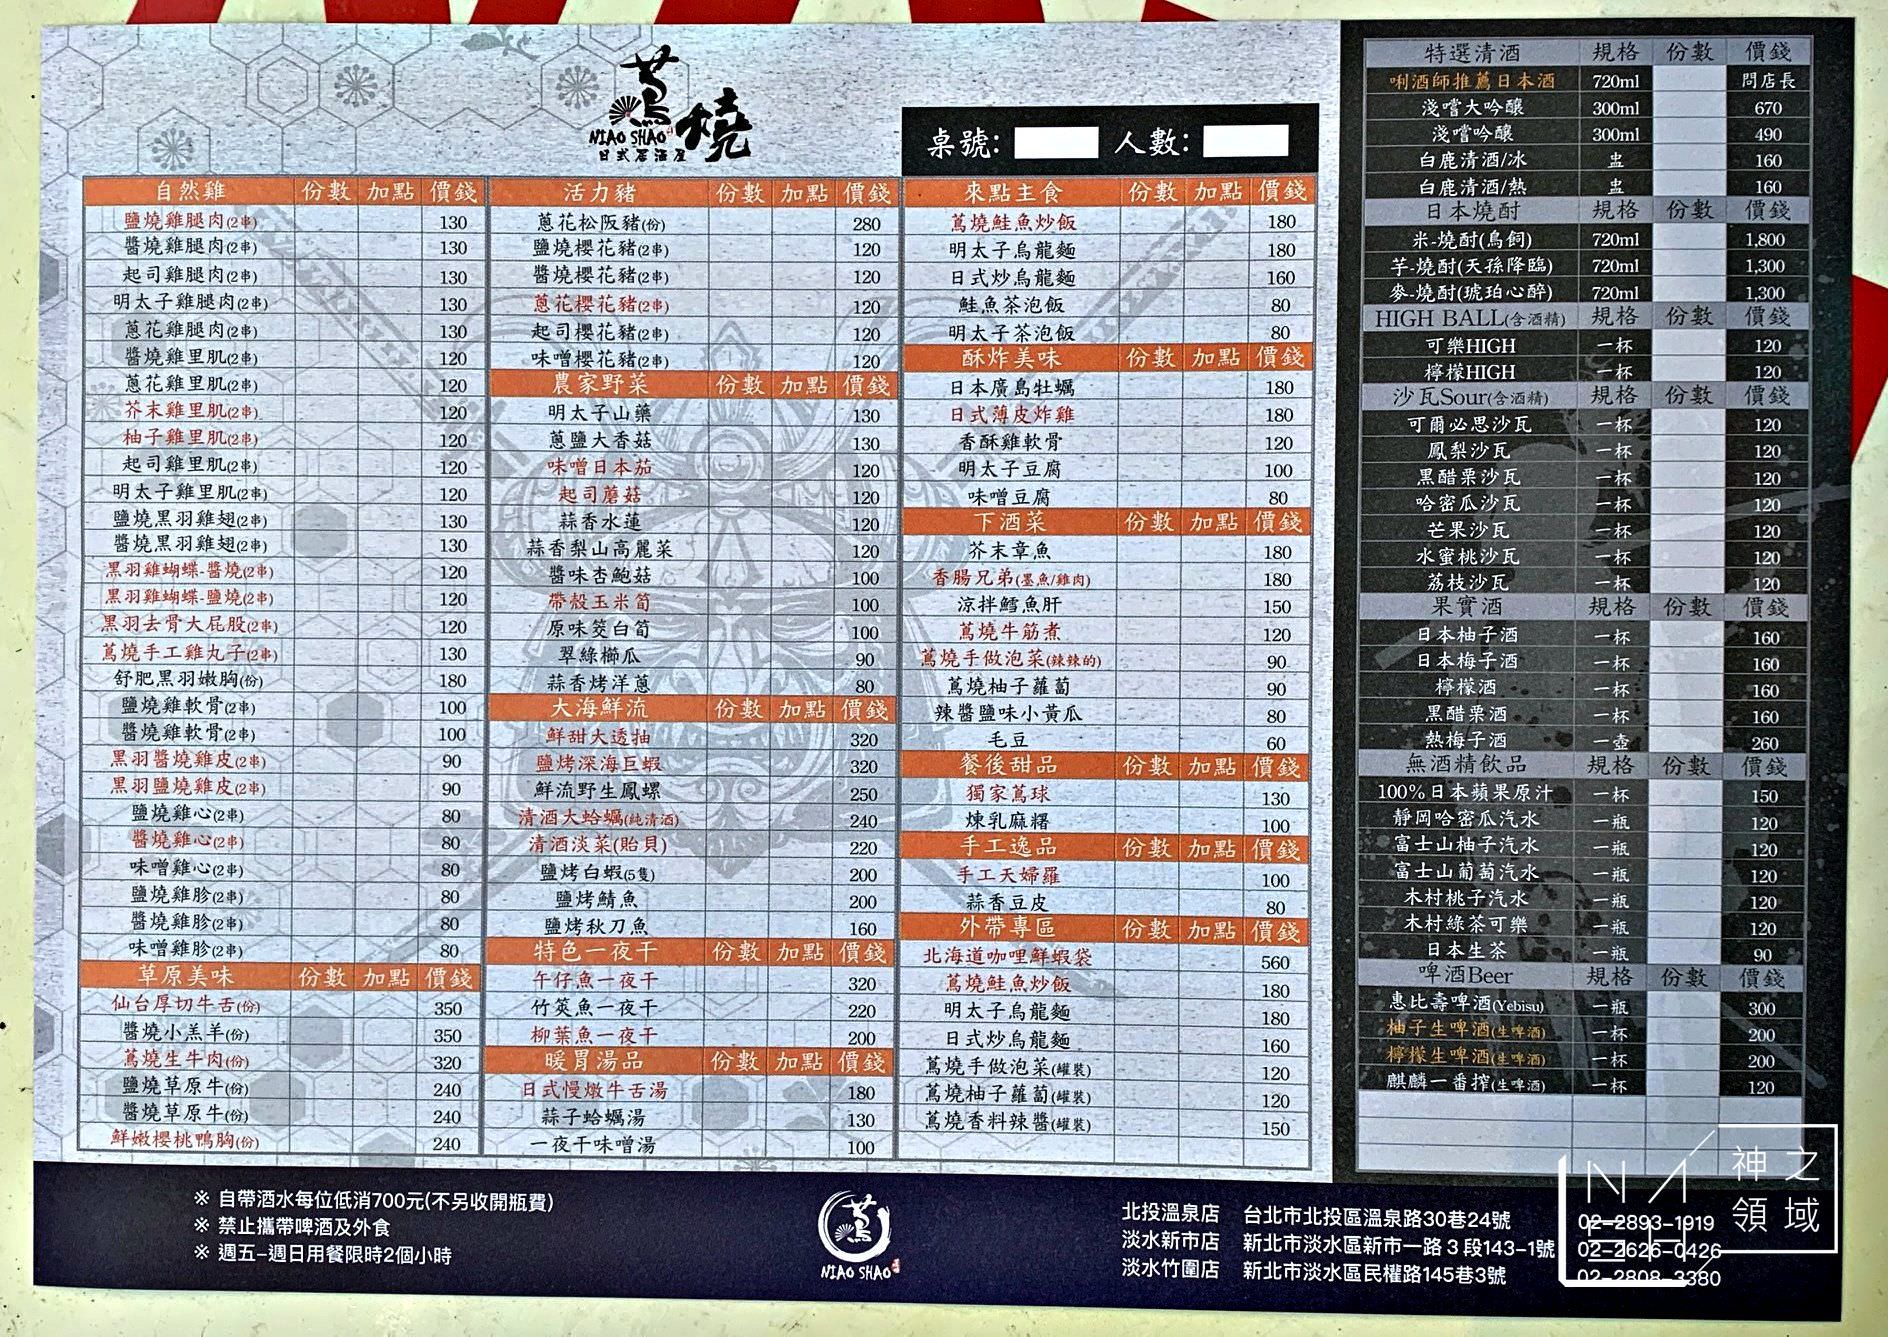 蔦燒
NIAO SHAO
日式居酒屋
桌號: 人數:
自然雞 份數 加點 價錢
鹽燒雞腿肉(2串) 130
醬燒雞腿肉(2串) 130
起司雞腿肉(2串) 130
明太子雞腿肉(2串) 130
蔥花雞腿肉(2串) 130
醬燒雞里肌(2串) 120
蔥花雞里肌(2串) 120
芥末雞里肌(2串) 120
柚子雞里肌(2串) 120
起司雞里肌(2串) 120
明太子雞里肌(2串) 120
鹽燒黑羽雞翅(2串) 130
醬燒黑羽雞翅(2串) 130
黑羽雞蝴蝶-醬燒(2串) 120
黑羽雞蝴蝶-鹽燒(2串) 120
黑羽去骨大屁股(2串) 120
蔦燒手工雞丸子(2串) 130
舒肥黑羽嫩胸(份) 180
鹽燒雞軟骨(2串) 100
醬燒雞軟骨(2串) 100
黑羽醬燒雞皮(2串) 90
黑羽鹽燒雞皮(2串) 90
鹽燒雞心(2串) 80
醬燒雞心(2串) 80
味噌雞心(2串) 80
鹽燒雞胗(2串) 80
醬燒雞胗(2串) 80
味噌雞胗(2串) 80
草原美味 份數 加點 價錢
仙台厚切牛舌(份) 350
醬燒小羔羊(份) 350
蔦燒生牛肉(份) 320
鹽燒草原牛(份) 240
醬燒草原牛(份) 240
鮮嫩櫻桃鴨胸(份) 240
活力豬 份數 加點 價錢
蔥花松阪豬(份) 280
鹽燒櫻花豬(2串) 120
醬燒櫻花豬(2串) 120
蔥花櫻花豬(2串) 120
起司櫻花豬(2串) 120
味噌櫻花豬(2串) 120
農家野菜 份數 加點 價錢
明太子山藥 130
蔥鹽大香菇 130
味噌日本茄 120
起司蘑菇 120
蒜香水蓮 120
蒜香梨山高麗菜 120
醬味杏鮑菇 100
帶殼玉米筍 100
原味筊白筍 100
翠綠櫛瓜 90
蒜香烤洋蔥 80
大海鮮流 份數 加點 價錢
鮮甜大透抽 320
鹽烤深海巨蝦 320
鮮流野生鳳螺 250
清酒大蛤蠣(純清酒) 240
清酒淡菜(貽貝) 220
鹽烤白蝦(5隻) 200
鹽烤鯖魚 200
鹽烤秋刀魚 160
特色一夜干 份數 加點 價錢
午仔魚一夜干 320
竹筴魚一夜干 220
柳葉魚一夜干 200
暖胃湯品 份數 加點 價錢
日式慢燉牛舌湯 180
蒜子蛤蠣湯 130
一夜干味噌湯 100
來點主食 份數 加點 價錢
蔦燒鮭魚炒飯 180
明太子烏龍麵 180
日式炒烏龍麵 160
鮭魚茶泡飯 80
明太子茶泡飯 80
酥炸美味 份數 加點 價錢
日本廣島牡蠣 180
日式薄皮炸雞 180
香酥雞軟骨 120
明太子豆腐 100
味噌豆腐 80
下酒菜 份數 加點 價錢
芥末章魚 180
香腸兄弟(墨魚/雞肉) 180
涼拌鱈魚肝 150
蔦燒牛筋煮 120
蔦燒手做泡菜(辣辣的) 90
蔦燒柚子蘿蔔 90
辣醬鹽味小黃瓜 80
毛豆 60
餐後甜品 份數 加點 價錢
獨家蔦球 130
煉乳麻糬 100
手工逸品 份數 加點 價錢
手工天婦羅 100
蒜香豆皮 80
外帶專區 份數 加點 價錢
北海道咖哩鮮蝦袋 560
蔦燒鮭魚炒飯 180
明太子烏龍麵 180
日式炒烏龍麵 160
蔦燒手做泡菜(罐裝) 120
蔦燒柚子蘿蔔(罐裝) 120
蔦燒香料辣醬(罐裝) 150
特選清酒 規格 份數 價錢
唎酒師推薦日本酒 720ml 問店長
淺嚐大吟釀 300ml 670
淺嚐吟釀 300ml 490
白鹿清酒/冰 盅 160
白鹿清酒/熱 盅 160
日本燒酎 規格 份數 價錢
米-燒酎(鳥飼) 720ml 1,800
芋-燒酎(天孫降臨) 720ml 1,300
麥-燒酎(琥珀心醉) 720ml 1,300
HIGH BALL(含酒精) 規格 份數 價錢
可樂HIGH 一杯 120
檸檬HIGH 一杯 120
沙瓦Sour(含酒精) 規格 份數 價錢
可爾必思沙瓦 一杯 120
鳳梨沙瓦 一杯 120
黑醋栗沙瓦 一杯 120
哈密瓜沙瓦 一杯 120
芒果沙瓦 一杯 120
水蜜桃沙瓦 一杯 120
荔枝沙瓦 一杯 120
果實酒 規格 份數 價錢
日本柚子酒 一杯 160
日本梅子酒 一杯 160
檸檬酒 一杯 160
黑醋栗酒 一杯 160
熱梅子酒 一壺 260
無酒精飲品 規格 份數 價錢
100%日本蘋果原汁 一杯 150
靜岡哈密瓜汽水 一瓶 120
富士山柚子汽水 一瓶 120
富士山葡萄汽水 一瓶 120
木村桃子汽水 一瓶 120
木村綠茶可樂 一瓶 120
日本生茶 一瓶 90
啤酒Beer 規格 份數 價錢
惠比壽啤酒(Yebisu) 一瓶 300
柚子生啤酒(生啤酒) 一杯 200
檸檬生啤酒(生啤酒) 一杯 200
麒麟一番搾(生啤酒) 一杯 120
※ 自帶酒水每位低消700元(不另收開瓶費)
※ 禁止攜帶啤酒及外食
※ 週五-週日用餐限時2個小時
蔦
NIAO SHAO
北投溫泉店 台北市北投區溫泉路30巷24號 02-2893-1919
淡水新市店 新北市淡水區新市一路3段143-1號 02-2626-0426
淡水竹圍店 新北市淡水區民權路145巷3號 02-2808-3380
神之
領域